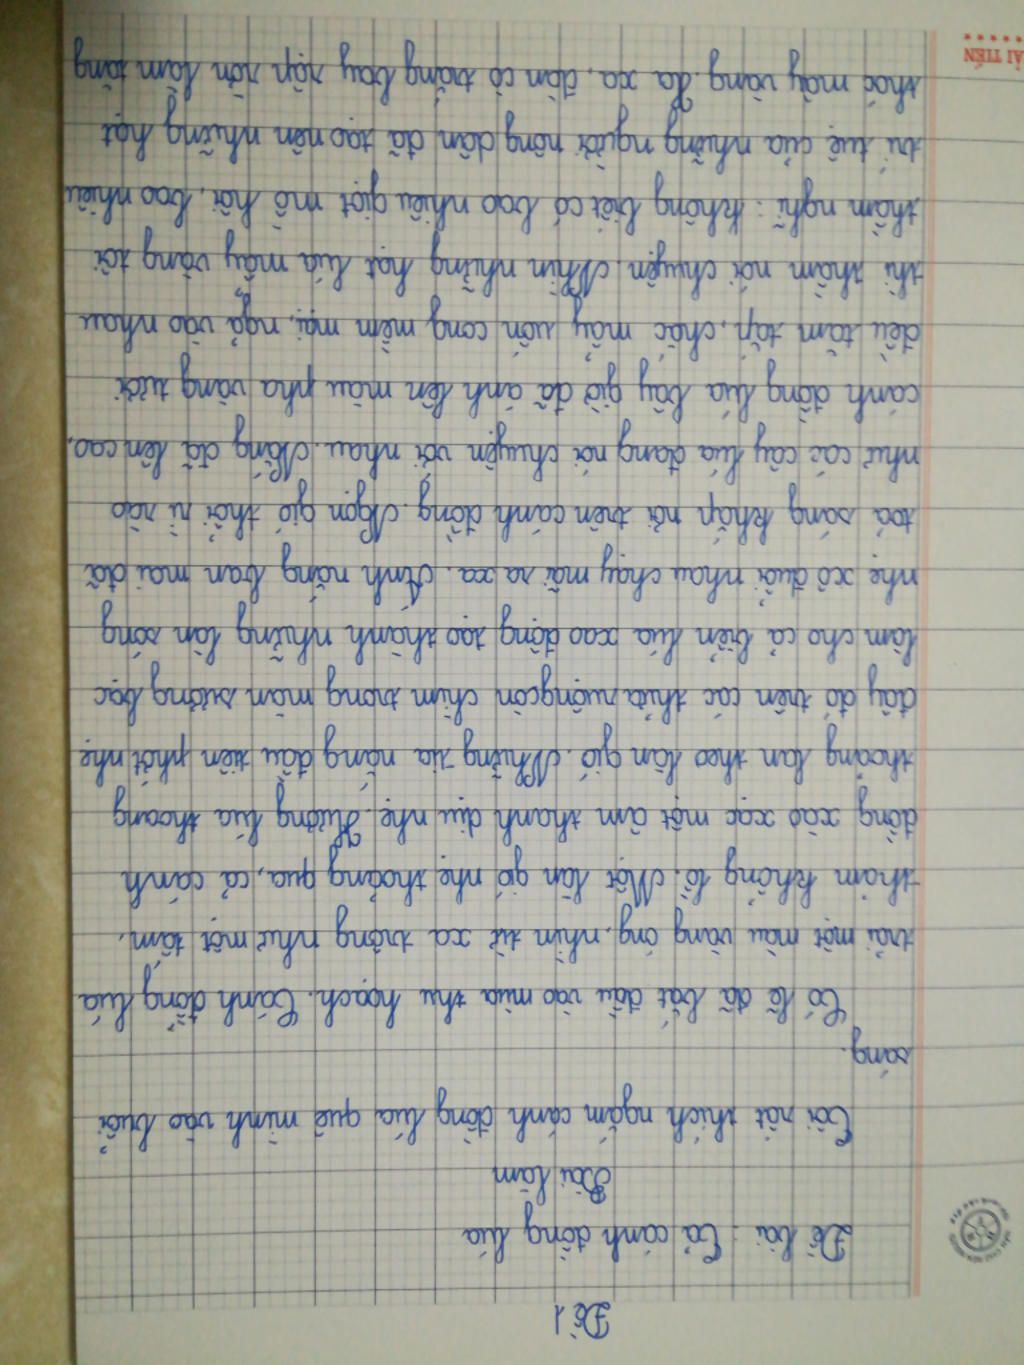 Đề 1
Đề bài: Tả cánh đồng lúa
Bài làm
Tôi rất thích ngắm cánh đồng lúa quê mình vào buổi
sáng.
Có lẽ đã bắt đầu vào mùa thu hoạch. Cánh đồng lúa
trải một màu vàng óng, nhìn từ xa trông như một tấm
thảm khổng lồ. Một làn gió nhẹ thoảng qua, cả cánh
đồng xào xạc một âm thanh dịu nhẹ. Hương lúa thoang
thoảng lan theo làn gió. Những tia nắng đầu tiên phớt nhẹ
đây đó trên các thửa ruộng còn chìm trong màn sương bạc
làm cho cả biển lúa xao động tạo thành những làn sóng
nhẹ xô đuổi nhau chạy mãi ra xa. Ánh nắng ban mai đã
toả sáng khắp nơi trên cánh đồng. Ngọn gió thổi rì rào
như các cây lúa đang nói chuyện với nhau. Nắng đã lên cao,
cánh đồng lúa bây giờ đã ánh lên màu pha vàng tươi
đều tăm tắp, chốc mấy uốn cong mềm mại, ngả vào nhau
thì thầm nói chuyện. Nhìn những hạt lúa mẩy vàng tôi
thầm nghĩ: không biết có bao nhiêu giọt mồ hôi, bao nhiêu
trí tuệ của những người nông dân đã tạo nên những hạt
thóc mẩy vàng. Xa xa, đàn cò trắng bay rập rờn làm tăng
ẢI TIẾN